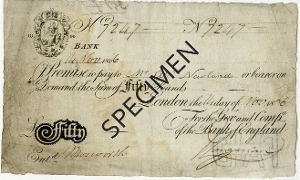 No 7247 No 7247
BANK
1806 Nov 11
I Promise to pay to Mr
Newland or bearer on
Demand the Sum of Fifty Pounds
London the day of Nov 1806
For the Gov and Compa
of the Bank of England
£ Fifty
Entd
SPECIMEN